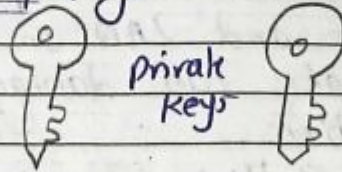 Private
keys